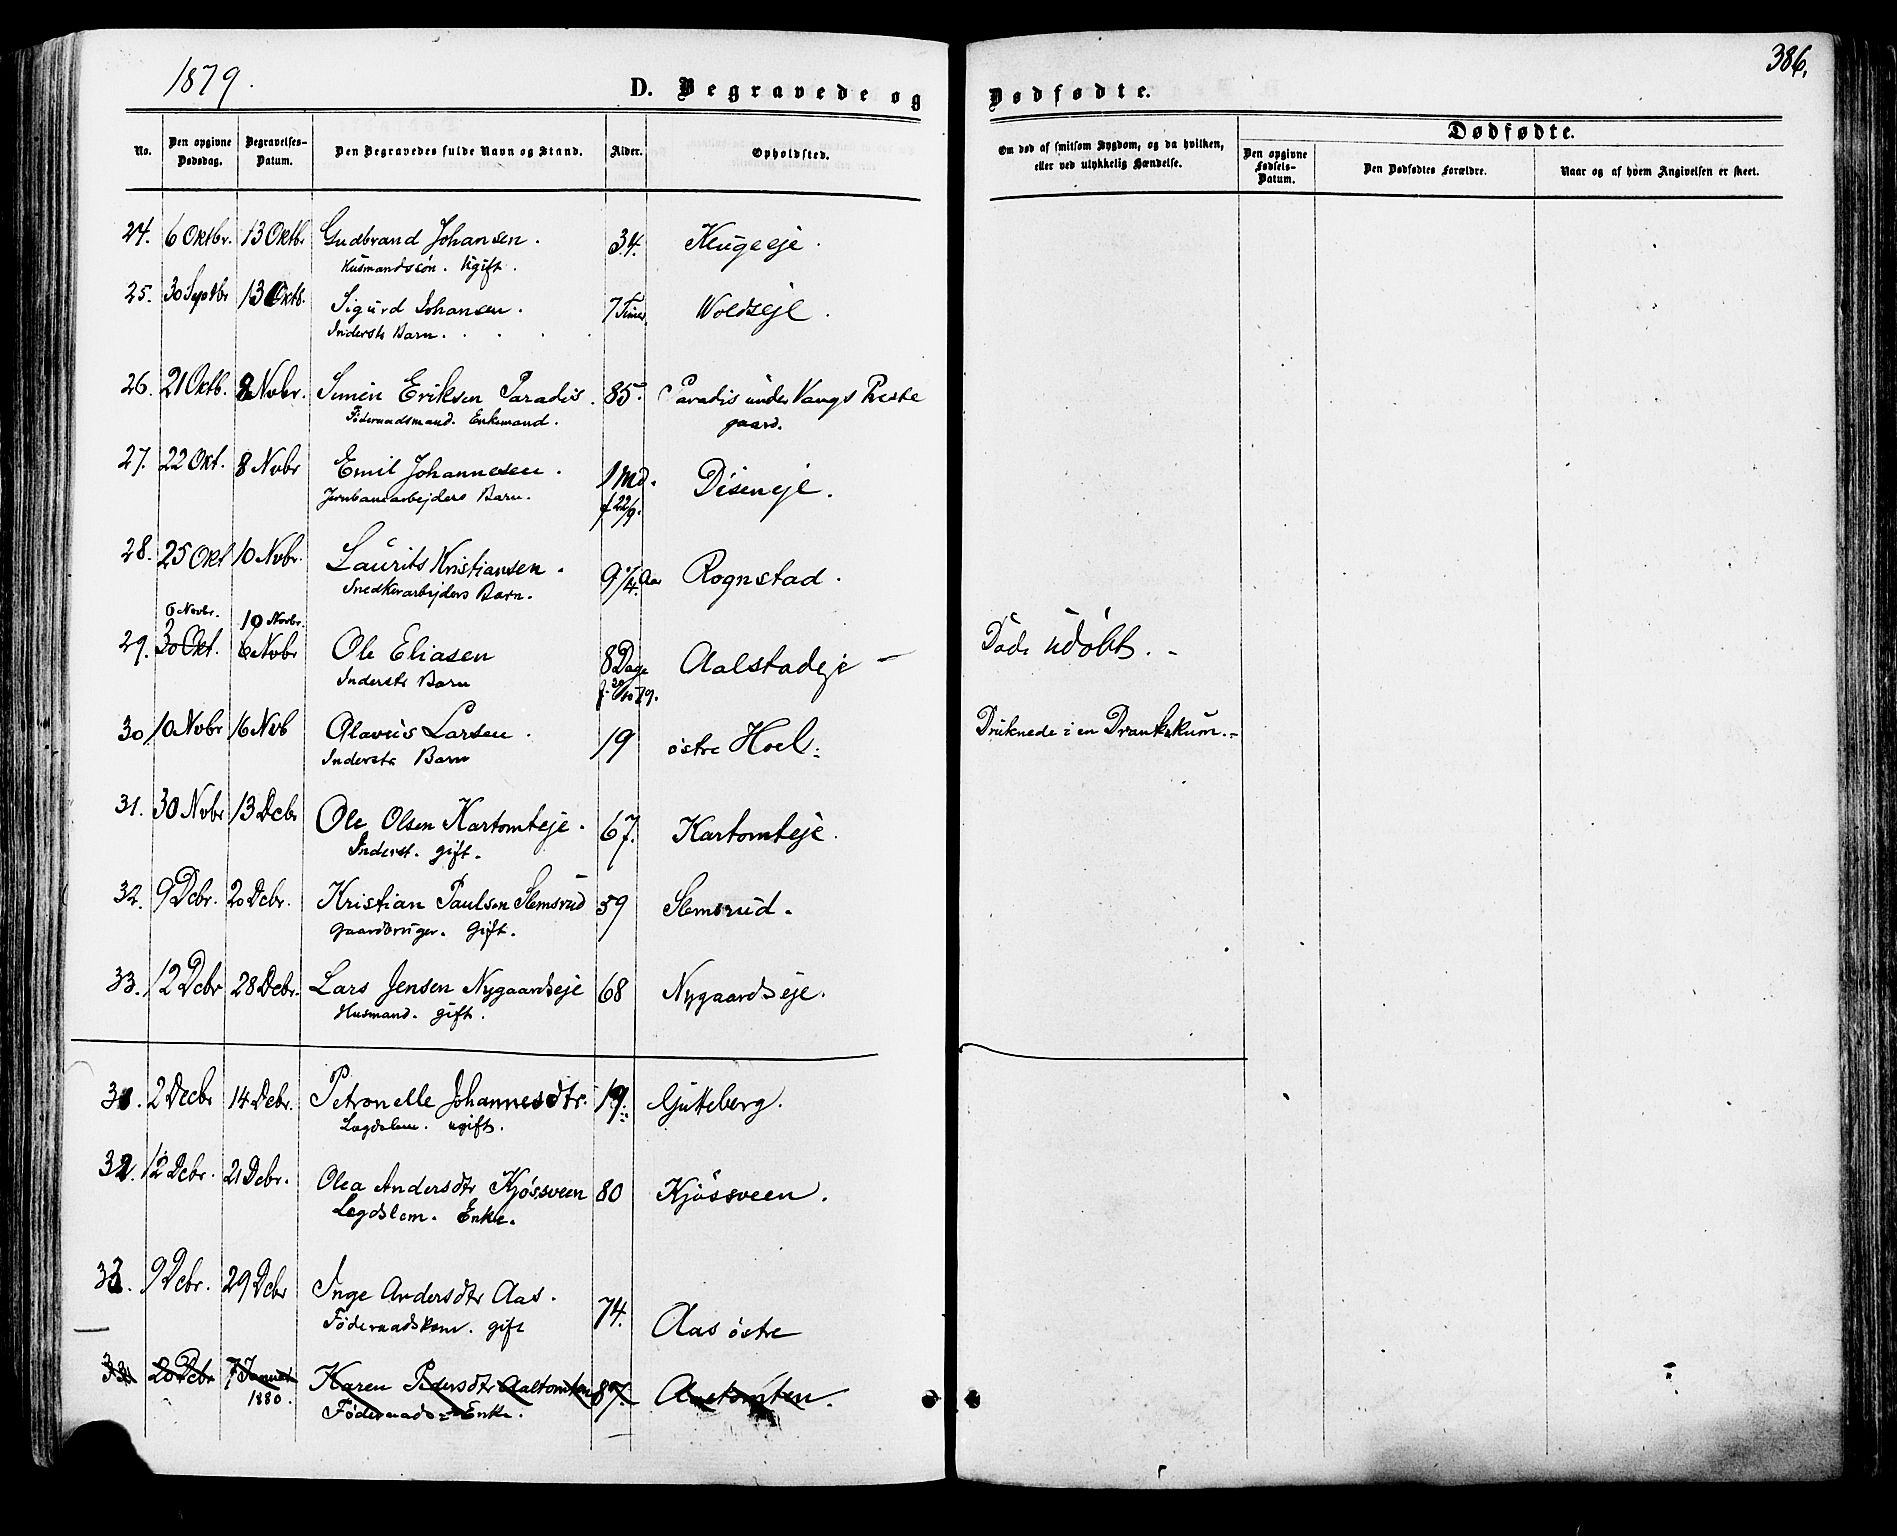 1879.
386.
D. Begravede og Dødfødte.
No. Den opgivne Dødsdag. Begravelses-Datum. Den Begravedes fulde Navn og Stand. Alder. Opholdsted. Om død af smitsom Sygdom, og da hvilken, eller ved ulykkelig Hændelse. Dødfødte.
Den opgivne Fødsels-Datum. Den Dødfødtes Forældre. Naar og af hvem Angivelsen er skeet.
24. 6 Oktbr. 13 Oktbr Gudbrand Johansen. 34. Klugeeje.
Husmandssøn. Ugift.
25. 30 Septbr 13 Oktb. Sigurd Johansen. 7 Timer Woldseje.
Inderste Barn.
26. 21 Oktb. 8 Novbr. Simen Eriksen Paradis. 85. Paradis under Vangs Preste
Föderaadsmand. Enkemand. gaard.
27. 22 Okt. 8 Novbr Emil Johannesen. 1 Md. Diseneje.
Jernbanearbejders Barn. f 22/9.
28. 25 Okt 10 Novbr. Laurits Kristiansen. 9 1/4. Aar Rognstad.
Snedkerarbejders Barn.
6 Novbr. 10 Novbr.
29. 30 Okt. 6 Novbr Ole Eliasen 8 Dage Aalstadeje — Døde udøbt. -
Inderste Barn f. 30/10 79.
30 10 Novbr 16 Novb Olavus Larsen. 19 østre Hoel. Druknede i en Drankekum. -
Inderste Barn
31. 30 Novbr 13 Decbr Ole Olsen Kartomteje. 67. Kartomteje.
Inderst. gift.
32. 9 Decbr. 20 Decbr. Kristian Paulsen Slemsrud 59 Slemsrud.
Gaardbruger. Gift.
33. 12 Decbr 28 Decbr. Lars Jensen Nygaardseje 68 Nygaardseje.
Husmand. gift.
31. 2 Decbr 14 Decbr. Petronelle Johannesdtr. 19. Gjutteberg.
Lægdslem. ugift.
32. 12 Decbr. 21 Decbr. Olea Andersdtr Kjøssveen 80 Kjøssveen.
Lægdslem. Enke.
33. 9 Decbr. 29 Decbr Inge Andersdtr Aas. 74. Aas østre
Föderaadskone. gift
20 Decbr 7 Januar 1880. Karen Pedersdtr Aaltomten 87. Aaltomten.
Föderaads Enke.